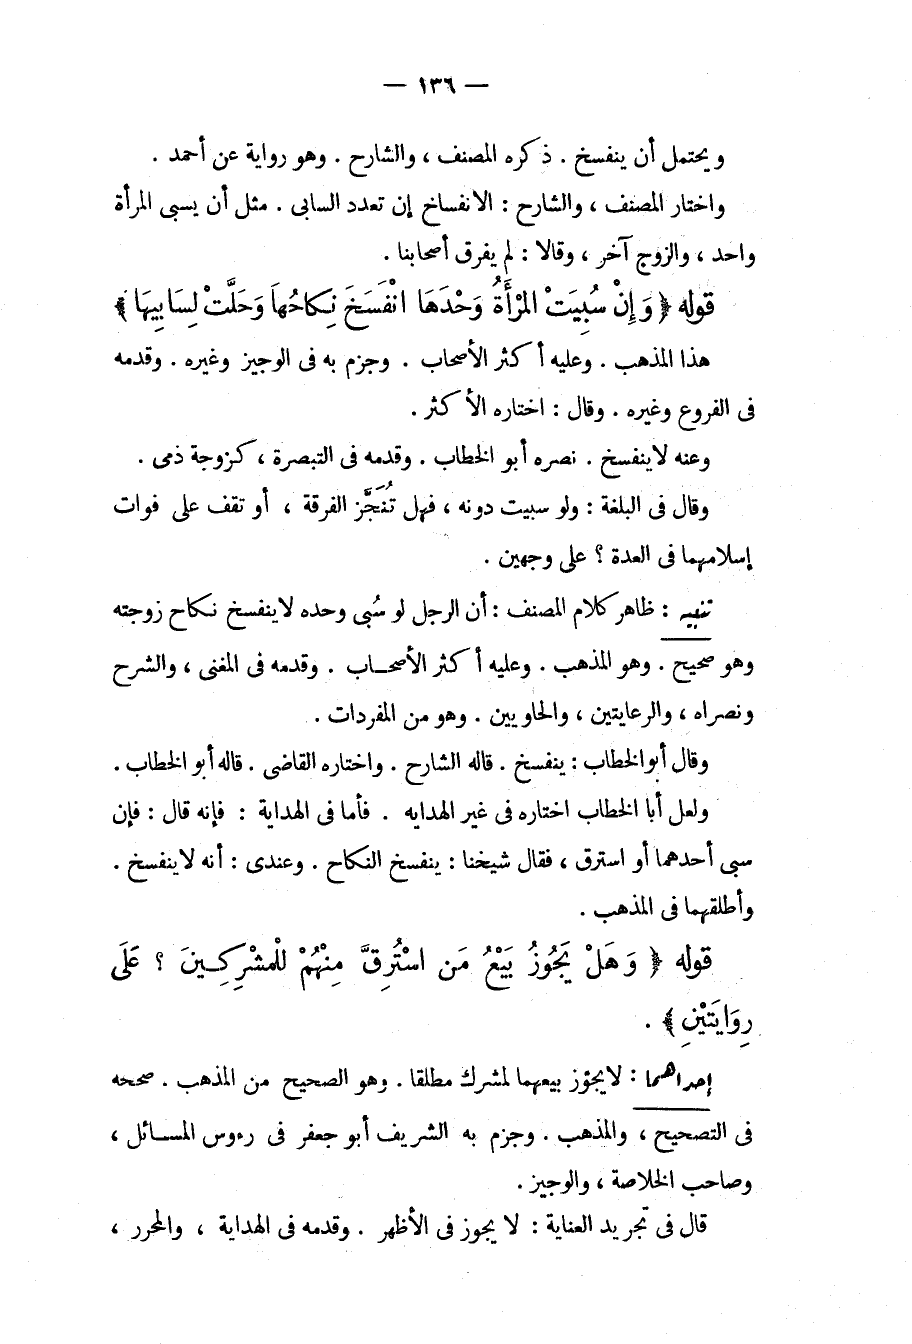 — ١٣٦ —
ويحتمل أن ينفسخ . ذكره المصنف ، والشارح . وهو رواية عن أحمد .
واختار المصنف ، والشارح : الانفساخ إن تعدد السابى . مثل أن يسبى المرأة
واحد ، والزوج آخر ، وقالا : لم يفرق أصحابنا .
قوله ﴿ وَإِنْ سُبِيَتْ المَرْأَةُ وَحْدَهَا انْفَسَخَ نِكَاحُهَا وَحَلَّتْ لِسَابِيهَا ﴾
هذا المذهب . وعليه أكثر الأصحاب . وجزم به فى الوجيز وغيره . وقدمه
فى الفروع وغيره . وقال : اختاره الأكثر .
وعنه لاينفسخ . نصره أبو الخطاب . وقدمه فى التبصرة ، كزوجة ذمى .
وقال فى البلغة : ولو سبيت دونه ، فهل تُنَجَّز الفرقة ، أو تقف على فوات
إسلامهما فى العدة ؟ على وجهين .
تنبيه : ظاهر كلام المصنف : أن الرجل لو سُبى وحده لاينفسخ نكاح زوجته
وهو صحيح . وهو المذهب . وعليه أكثر الأصحـاب . وقدمه فى المغنى ، والشرح
ونصراه ، والرعايتين ، والحاويين . وهو من المفردات .
وقال أبوالخطاب : ينفسخ . قاله الشارح . واختاره القاضى . قاله أبو الخطاب .
ولعل أبا الخطاب اختاره فى غير الهدايه . فأما فى الهداية : فإنه قال : فإن
سبى أحدهما أو استرق ، فقال شيخنا : ينفسخ النكاح . وعندى : أنه لاينفسخ .
وأطلقهما فى المذهب .
قوله ﴿ وَهَلْ يَجُوزُ بَيْعُ مَن اسْتُرِقَّ مِنْهُمْ لِلْمشْرِكِـينَ ؟ عَلَى
رِوَايَتَيْنِ ﴾ .
إحداهما : لايجوز بيعهما لمشرك مطلقا . وهو الصحيح من المذهب . صححه
فى التصحيح ، والمذهب . وجزم به الشريف أبو جعفر فى رءوس المسـائل ،
وصاحب الخلاصة ، والوجيز .
قال فى تجريد العناية : لا يجوز فى الأظهر . وقدمه فى الهداية ، والمحرر ،